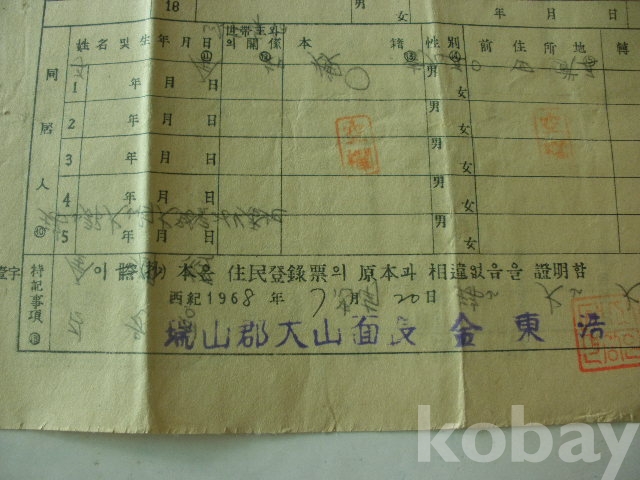 18 男 女 年 月 日
姓名 및 生年月日 ⑪ 世帶主와의 關係 ⑫ 本籍 ⑬ 性別 ⑭ 前住所地 轉
同居人 ⑩
1 年 月 日 男 女
2 年 月 日 男 女
3 年 月 日 男 女
4 年 月 日 男 女
5 年 月 日 男 女
特記事項
이 謄(抄)本은 住民登錄票의 原本과 相違없음을 證明함
西紀1968年 7月 20日
瑞山郡大山面長 金東浩
kobay